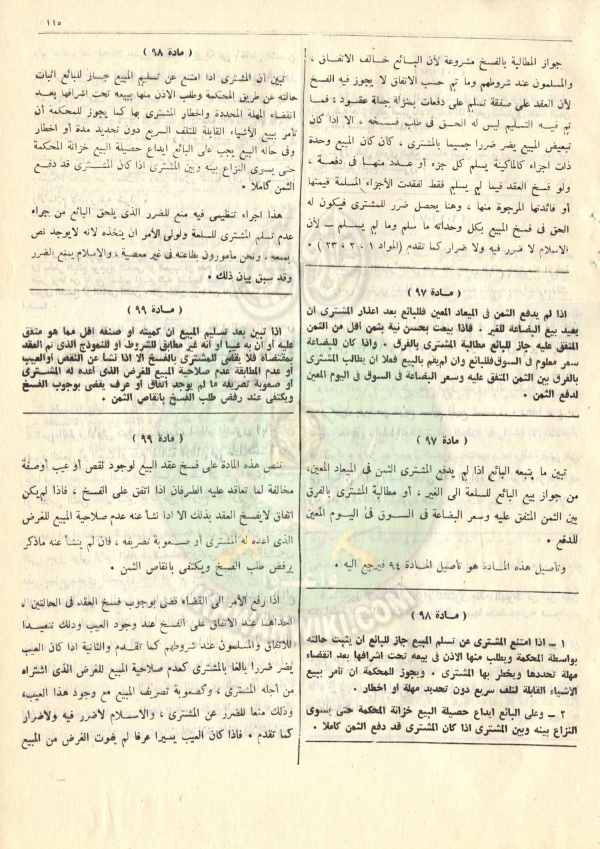 ١١٥
جواز المطالبة بالفسخ مشروعة لأن البائع خالف الاتفاق ،
والمسلمون عند شروطهم وما تم حسب الاتفاق لا يجوز فيه الفسخ
لأن العقد على صفقة تسلم على دفعات بمنزلة جملة عقود ، فما
تم فيه التسليم ليس له الحق فى طلب فسخه ، الا اذا كان
تبعيض المبيع يضر ضررا جسيما بالمشترى ، كأن كان المبيع وحدة
ذات اجزاء كالماكينة يسلم كل جزء أو عدد منها فى دفعة ،
ولو فسخ العقد فيما لم يسلم فقط لفقدت الأجزاء المسلمة قيمتها
أو فائدتها المرجوة منها ، وهنا يحصل ضرر للمشترى فيكون له
الحق فى فسخ المبيع بكل وحداته ما سلم وما لم يسلم ــ لأن
الاسلام لا ضرر فيه ولا ضرار كما تقدم ( المواد ١ ، ٢ ، ٢٣ ) ٠
( مادة ٩٧ )
اذا لم يدفع الثمن فى الميعاد المعين فللبائع بعد اعذار المشترى ان
يعيد بيع البضاعة للغير ٠ فاذا بيعت بحسن نية بثمن اقل من الثمن
المتفق عليه جاز للبائع مطالبة المشترى بالفرق ٠ واذا كان للبضاعة
سعر معلوم فى السوق فللبائع وان لم يقم بالبيع فعلا ان يطالب المشترى
بالفرق بين الثمن المتفق عليه وسعر البضاعة فى السوق فى اليوم المعين
لدفع الثمن ٠
( مادة ٩٧ )
تبين ما يتبعه البائع اذا لم يدفع المشترى الثمن فى الميعاد المعين،
من جواز بيع البائع للسلعة الى الغير ، أو مطالبة المشترى بالفرق
بين الثمن المتفق عليه وسعر البضاعة فى السوق فى اليوم المعين
للدفع ٠
وتأصيل هذه المادة هو تأصيل المادة ٩٤ فيرجع اليه ٠
( مادة ٩٨ )
١ ــ اذا امتنع المشترى عن تسلم المبيع جاز للبائع ان يثبت حالته
بواسطة المحكمة ويطلب منها الاذن فى بيعه تحت اشرافها بعد انقضاء
مهلة تحددها ويخطر بها المشترى ٠ ويجوز للمحكمة ان تأمر ببيع
الأشياء القابلة للتلف سريع دون تحديد مهلة أو اخطار ٠
٢ ــ وعلى البائع ايداع حصيلة البيع خزانة المحكمة حتى يسوى
النزاع بينه وبين المشترى اذا كان المشترى قد دفع الثمن كاملا ٠
( مادة ٩٨ )
تبين أن المشترى اذا امتنع عن تسليم المبيع جاز للبائع اثبات
حالته عن طريق المحكمة وطلب الاذن منها ببيعه تحت اشرافها بعد
انقضاء المهلة المحددة واخطار المشترى بها كما يجوز للمحكمة أن
تأمر ببيع الأشياء القابلة للتلف السريع دون تحديد مدة أو اخطار
وفى حاله البيع يجب على البائع ايداع حصيلة البيع خزانة المحكمة
حتى يسوى النزاع بينه وبين المشترى اذا كان المشترى قد دفع
الثمن كاملا ٠
هذا اجراء تنظيمى فيه منع للضرر الذى يلحق البائع من جراء
عدم تسلم المشترى للسلعة ولولى الأمر ان يتخذه لانه لايوجد نص
يمنعه ٠ ونحن مأمورون بطاعته فى غير معصية ، والاسلام يمنع الضرر
وقد سبق بيان ذلك ٠
( مادة ٩٩ )
اذا تبين بعد تسليم المبيع ان كميته او صنفه اقل مما هو متفق
عليه او ان به عيبا او انه غير مطابق للشروط او للنموذج الذى تم العقد
بمقتضاه فلا يقضى للمشترى بالفسخ الا اذا نشأ عن النقص او العيب
او عدم المطابقة عدم صلاحية المبيع للغرض الذى اعده له المشترى
او صعوبة تصريفه ما لم يوجد اتفاق او عرف يقضى بوجوب الفسخ
ويكتفى عند رفض طلب الفسخ بانقاص الثمن ٠
( مادة ٩٩ )
تنص هذه المادة على فسخ عقد البيع لوجود نقص أو عيب أوصفة
مخالفة لما تعاقد عليه الطرفان اذا اتفق على الفسخ ، فاذا لم يكن
اتفاق لايفسخ العقد بذلك الا اذا نشأ عنه عدم صلاحية المبيع للغرض
الذى اعده له المشترى أو صعوبة تصريفه ، فان لم ينشأ عنه ماذكر
يرفض طلب الفسخ ويكتفى بانقاص الثمن ٠
اذا رفع الأمر الى القضاء قضى بوجوب فسخ العقد فى الحالتين :
احداهما عند الاتفاق على الفسخ عند وجود العيب وذلك تنفيـذا
للاتفاق والمسلمون عند شروطهم كما تقدم والثانية اذا كان العيب
يضر ضررا بالغا بالمشترى كعدم صلاحية المبيع للغرض الذى اشتراه
من أجله المشترى ، وكصعوبة تصريف المبيع مع وجود هذا العيب،
وذلك منعا للضرر عن المشترى ، والاسلام لاضرر فيه ولاضرار
كما تقدم ٠ فاذا كان العيب يسيرا عرفا لم يفوت الغرض من المبيع